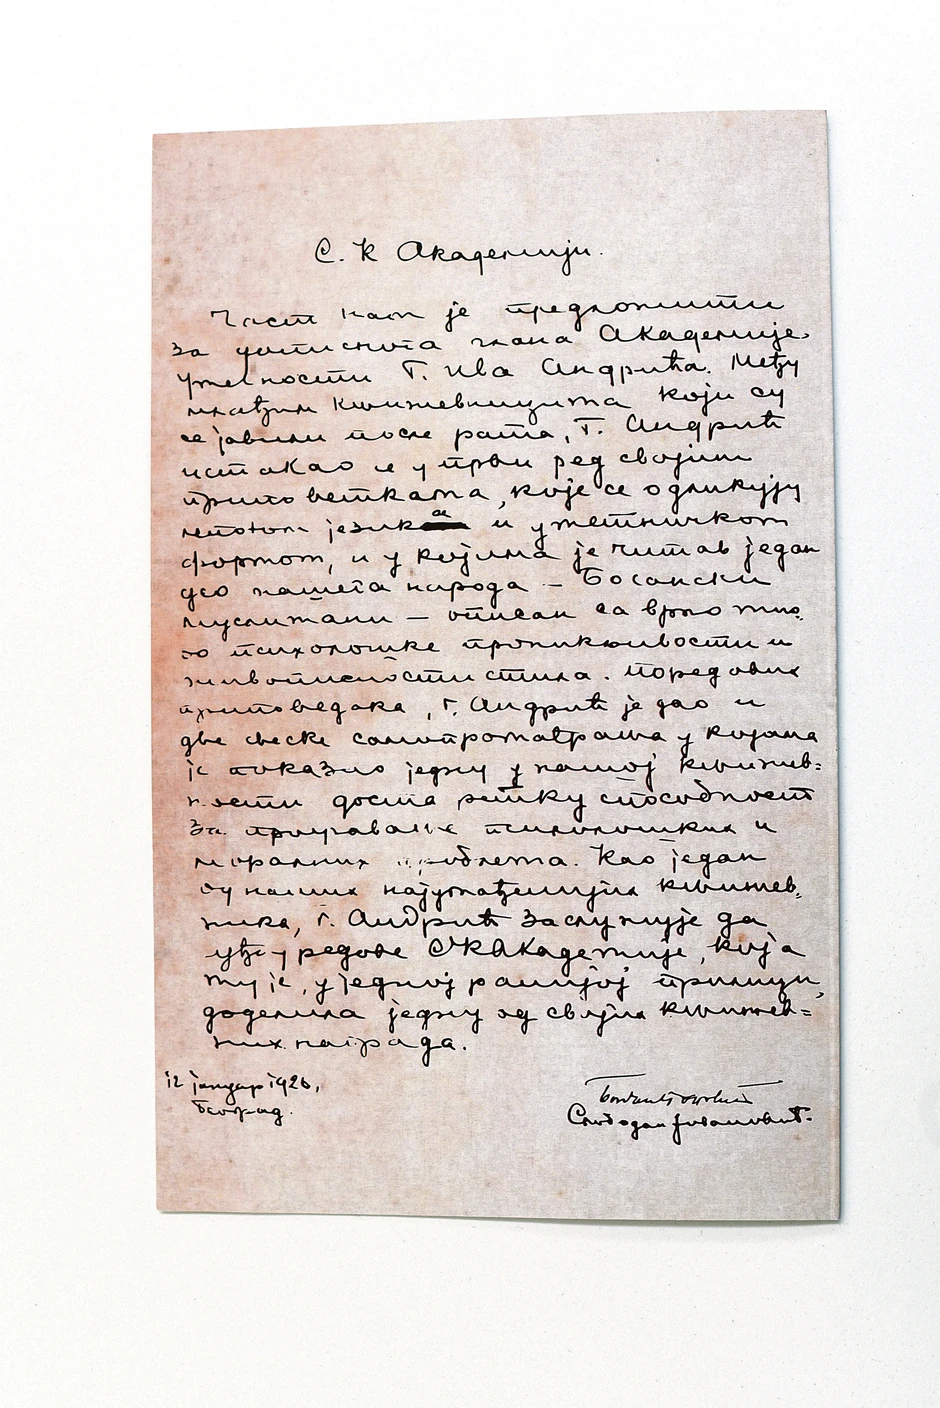 С. К Академији.
Част нам је предложити
за дописнога члана Академије
Уметности Г. Ива Андрића. Међу
млађим књижевницима који су
се јавили после рата, Г. Андрић
истакао се у први ред својим
приповеткама, које се одликују
лепотом језика и уметничком
формом, и у којима је читав један
део нашега народа – Босански
муслимани – описан са врло мно
го психолошке проникљивости и
живописности стила. Поред ових
приповедака, Г. Андрић је дао и
две свеске
је показао једну у нашој књижев=
ности доста ретку способност
за проучавање психолошких и
моралних проблема. Као један
од наших најумађенијих књижев=
ника, Г. Андрић заслужује да
уђе у редове СКАкадемије, која
му је, у једној ранијој прилици,
доделила једну од својих књижев=
них награда.
12 јануар 1926,
Београд.
Слободан Јовановић.